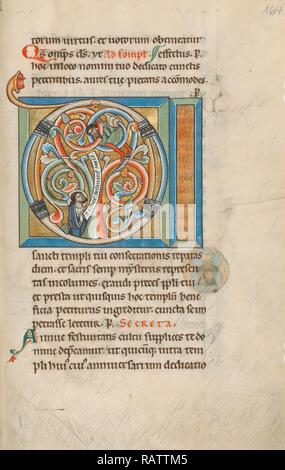 164
torum uirtus. et uotorum obtineatur
effectus. P.
hoc in loco nomini tuo dedicato cunctis
petentibus. aures tue pietatis accomodes.
.P.
D
sancti templi tui consecrationis reparas
diem. et sacris semp mysteriis represen
tas incolumes. exaudi preces ppli tui
et presta ut quisquis hoc templum bene
ficia petiturus ingreditur. cuncta se im
petrasse letetur. P. SECRETA.
Annue
supplices te do
mine
ut quicunq; intra tem
pli huius cuius anniuersarium dedicatio
a
alamy
Image ID: RATTM5
www.alamy.com